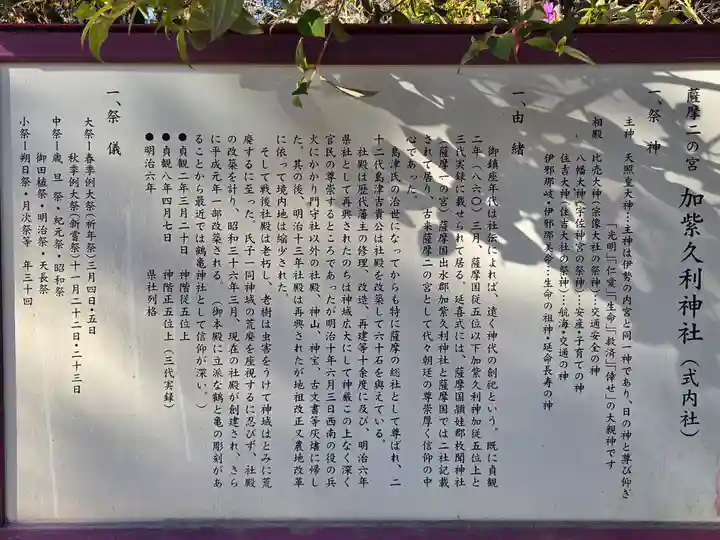 薩摩二の宮 加紫久利神社(式内社)
一、祭神
主神 天照皇大神…主神は伊勢の内宮と同一神であり、日の神と尊び仰ぎ
「光明」「仁愛」「生命」「救済」「倖せ」の大親神です
相殿 比売大神(宗像大社の祭神)…交通安全の神
八幡大神(宇佐神宮の祭神)…安産・子育ての神
住吉大神(住吉大社の祭神)…航海・交通の神
伊邪那岐・伊邪那美命…生命の祖神・延命長寿の神
一、由緒
御鎮座年代は社伝によれば、遠く神代の創祀という。既に貞観
二年(八六〇)三月、薩摩国従五位以下加紫久利神加従五位上と
三代実録に載せられて居る。延喜式には、薩摩国頴娃郡枚聞神社
(薩摩一の宮)薩摩国出水郡加紫久利神社と薩摩国では二社記載
されて居り、古来薩摩二の宮として代々朝廷の尊崇厚く信仰の中
心であった。
島津氏の治世になってからも特に薩摩の総社として尊ばれ、二
十二代島津吉貴公は社殿を改築して六十石を與えている。
社殿は歴代藩主の修理、改造、再建等十余度に及び、明治六年
県社として再興されたのちは神域広大にして神厳この上なく深く
官民の尊崇するところであったが明治十年六月三日西南の役の兵
火にかかり門守社以外の社殿、神山、神宝、古文書等灰燼に帰し
た。其の後、明治十三年社殿は再興されたが地租改正又農地改革
に依って境内地は縮少された。
そして戦後社殿は老朽し、老樹は虫害をうけて神域はとみに荒
廃するに至った。氏子一同神域の荒廃を座視するに忍びず、社殿
の改築を計り、昭和三十六年三月、現在の社殿が創建され、さら
に平成元年一部改築される。(御本殿に立派な鶴と亀の彫刻があ
ることから最近では鶴亀神社として信仰が深い。)
●貞観二年三月二十日 神階従五位上
●貞観八年四月七日 神階正五位上(三代実録)
●明治六年 県社列格
一、祭儀
大祭ー春季例大祭(祈年祭)三月四日・五日
秋季例大祭(新嘗祭)十一月二十二日・二十三日
中祭ー歳旦祭・紀元祭・昭和祭
御田植祭・明治祭・天長祭
小祭ー朔日祭・月次祭等 年三十回